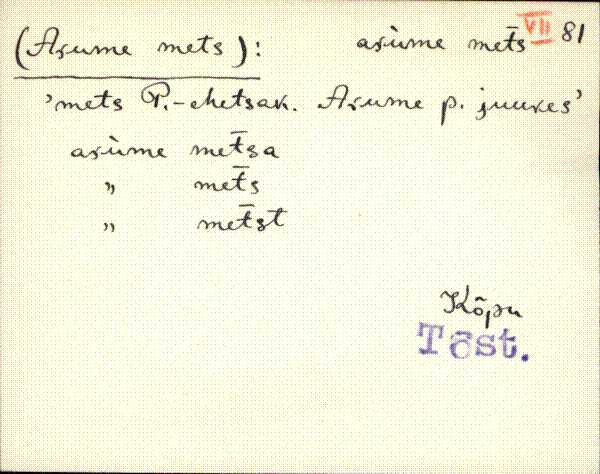 (Arume mets): arùme met̄s VII 81
'mets P.-ehetsak. Arume p. juures'
arùme met̄sa
„ met̄s
„ met̄st
Kõpu
Tõst.